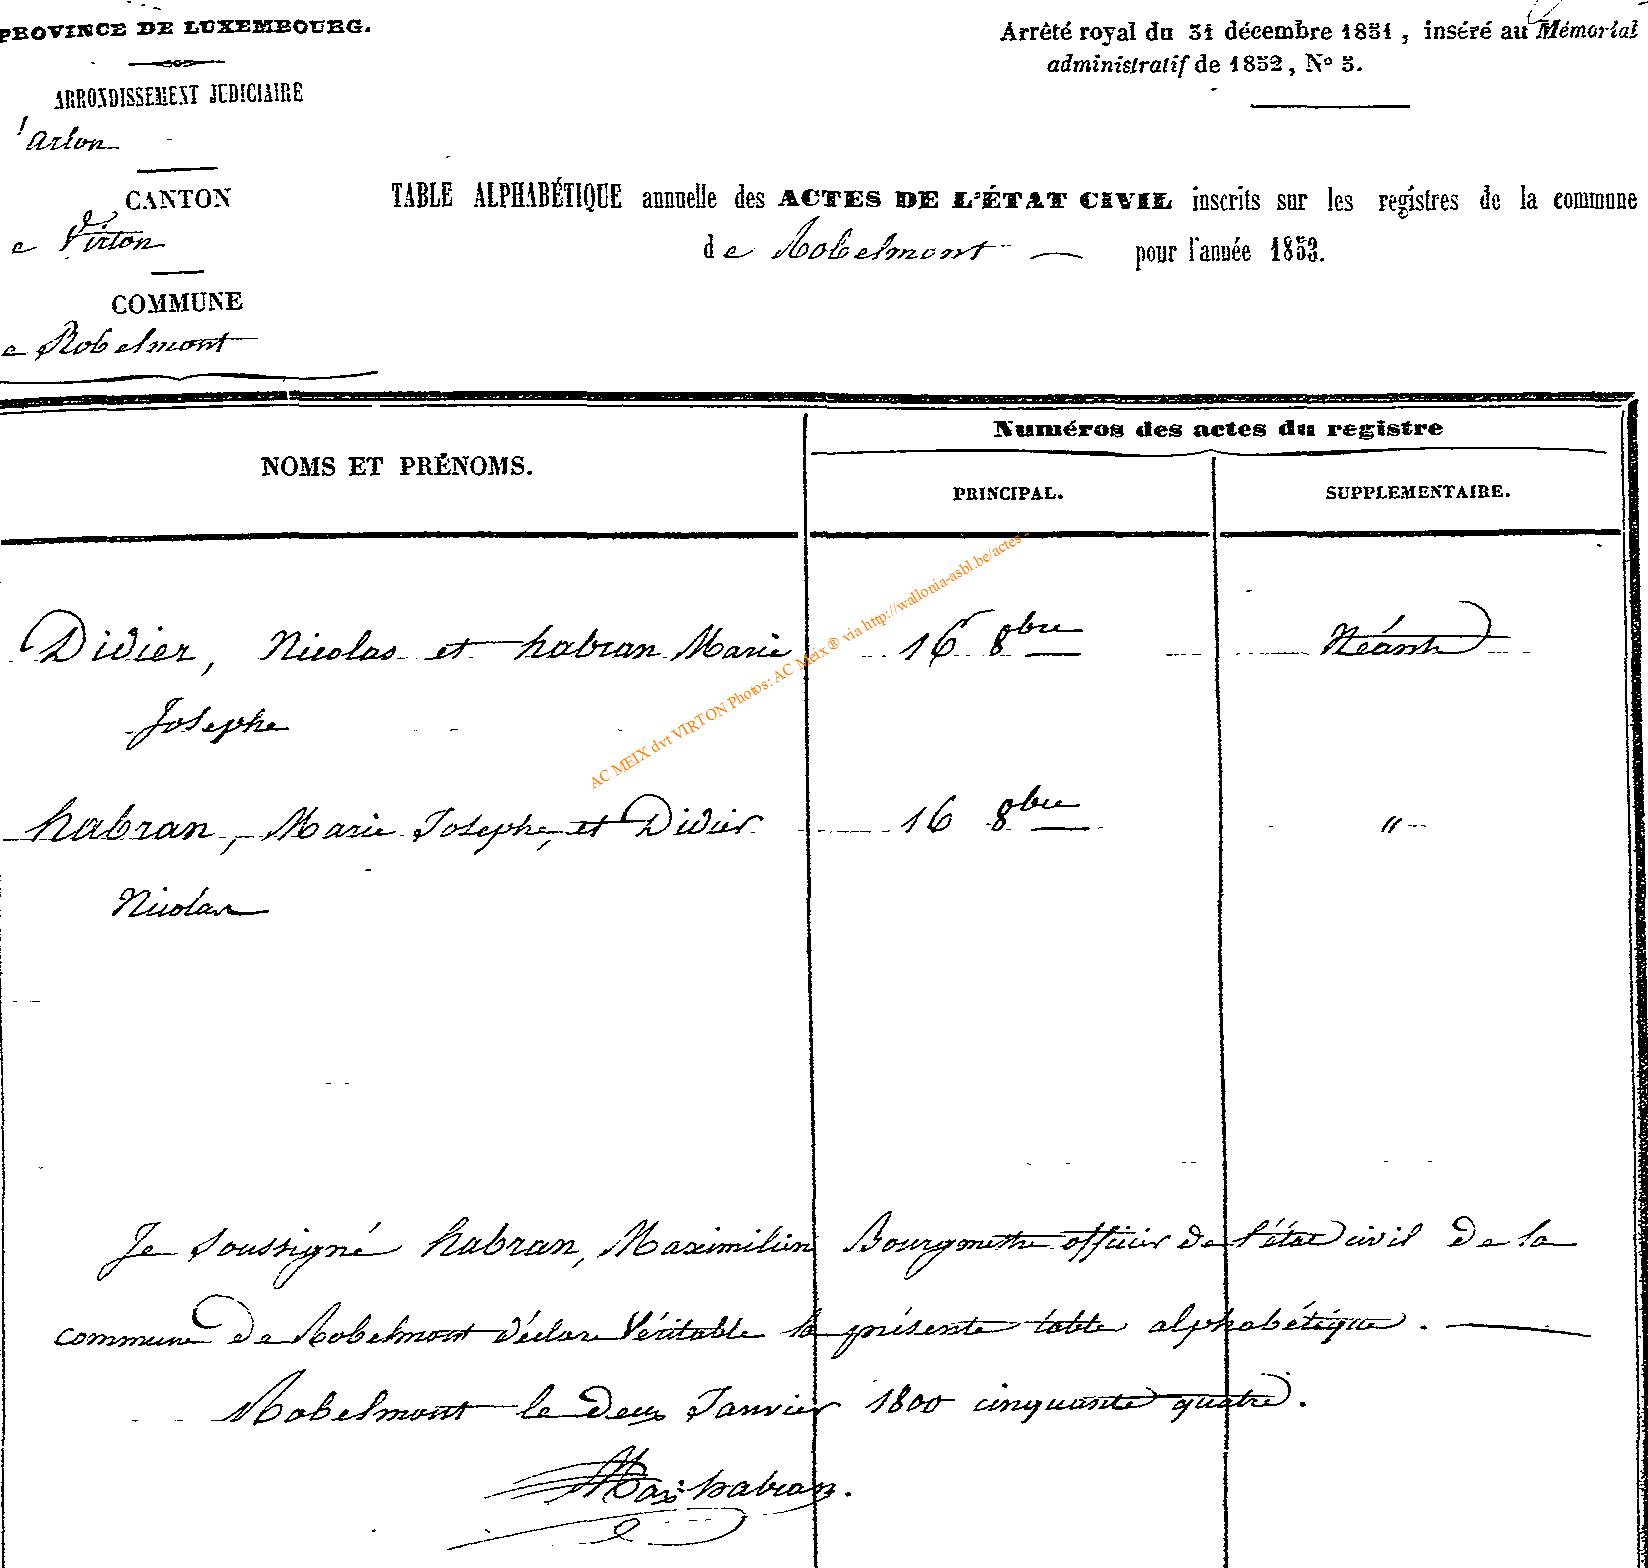 PROVINCE DE LUXEMBOURG.
ARRONDISSEMENT JUDICIAIRE
'Arlon
CANTON
e Virton
COMMUNE
e Robelmont
Arrêté royal du 31 décembre 1851, inséré au Mémorial
administratif de 1852, Nº 3.
TABLE ALPHABÉTIQUE annuelle des ACTES DE L'ÉTAT CIVIL inscrits sur les registres de la commune
de Robelmont pour l'année 1853.
NOMS ET PRÉNOMS.
Numéros des actes du registre
PRINCIPAL.
SUPPLEMENTAIRE.
Didier, Nicolas et habran Marie 16 8bre Néant
Josephe
habran, Marie Josephe, et Didier 16 8bre "
Nicolas
AC MEIX dvt VIRTON Photos: AC Meix® via http://wallonia-asbl.be/actes
Je soussigné habran, Maximilien Bourgmestre officier de l'état civil de la
commune de Robelmont déclare Véritable la présente table alphabétique.
Robelmont le deux Janvier 1800 cinquante quatre.
Max habran.